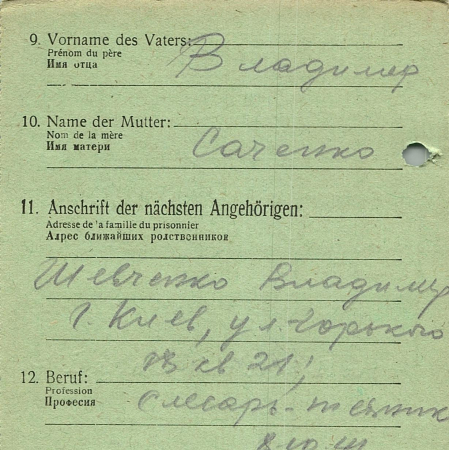 9. Vorname des Vaters:
Prénom du père
Имя отца
Владимер
10. Name der Mutter:
Nom de la mère
Имя матери
Саченко
11. Anschrift der nächsten Angehörigen:
Adresse de la famille du prisonnier
Адрес ближайших родственников
Шевченко Владимер
г. Киев, ул. Горького
кв 21,
12. Beruf:
Profession
Професия
Слесарь-техник